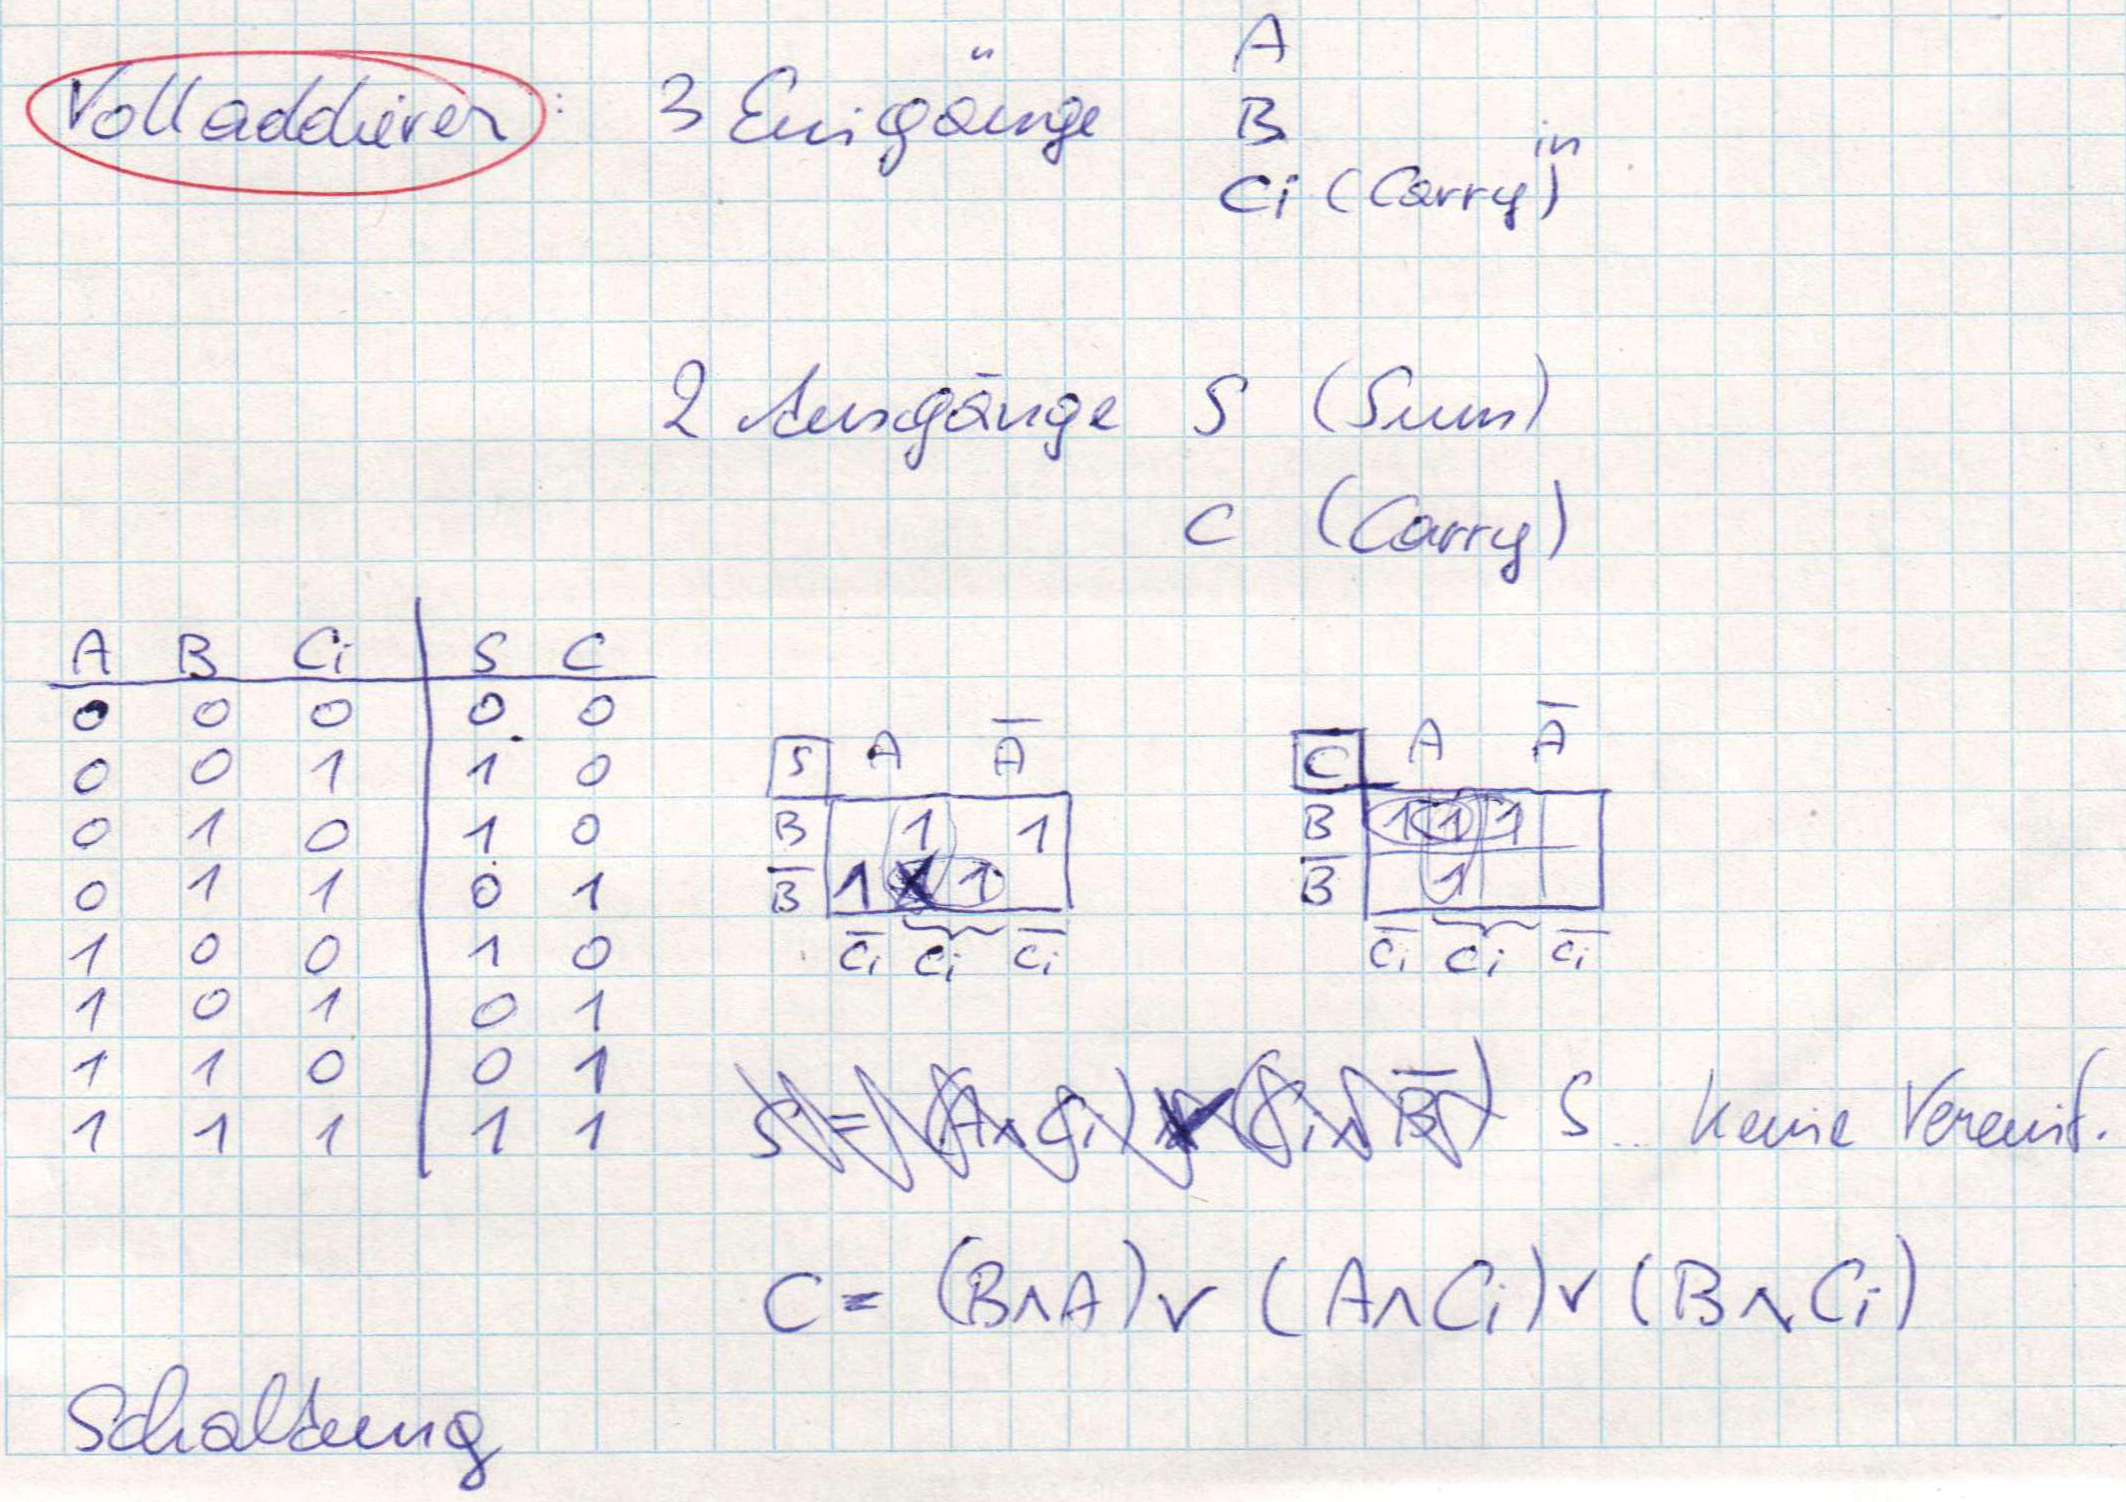 Volladdierer: 3 Eingänge A
B
Ci (Carry in)
2 Ausgänge S (Sum)
C (Carry)
A B Ci S C
0 0 0 0 0
0 0 1 1 0
0 1 0 1 0
0 1 1 0 1
1 0 0 1 0
1 0 1 0 1
1 1 0 0 1
1 1 1 1 1
S A A̅
B 1 1
B̅ 1 1
C̅i Ci C̅i
C A A̅
B 1 1 1
B̅ 1
C̅i Ci C̅i
S = (A∧Ci) ∨ (Ci∧B̅) S... keine Vereinf.
C = (B∧A) ∨ (A∧Ci) ∨ (B∧Ci)
Schaltung